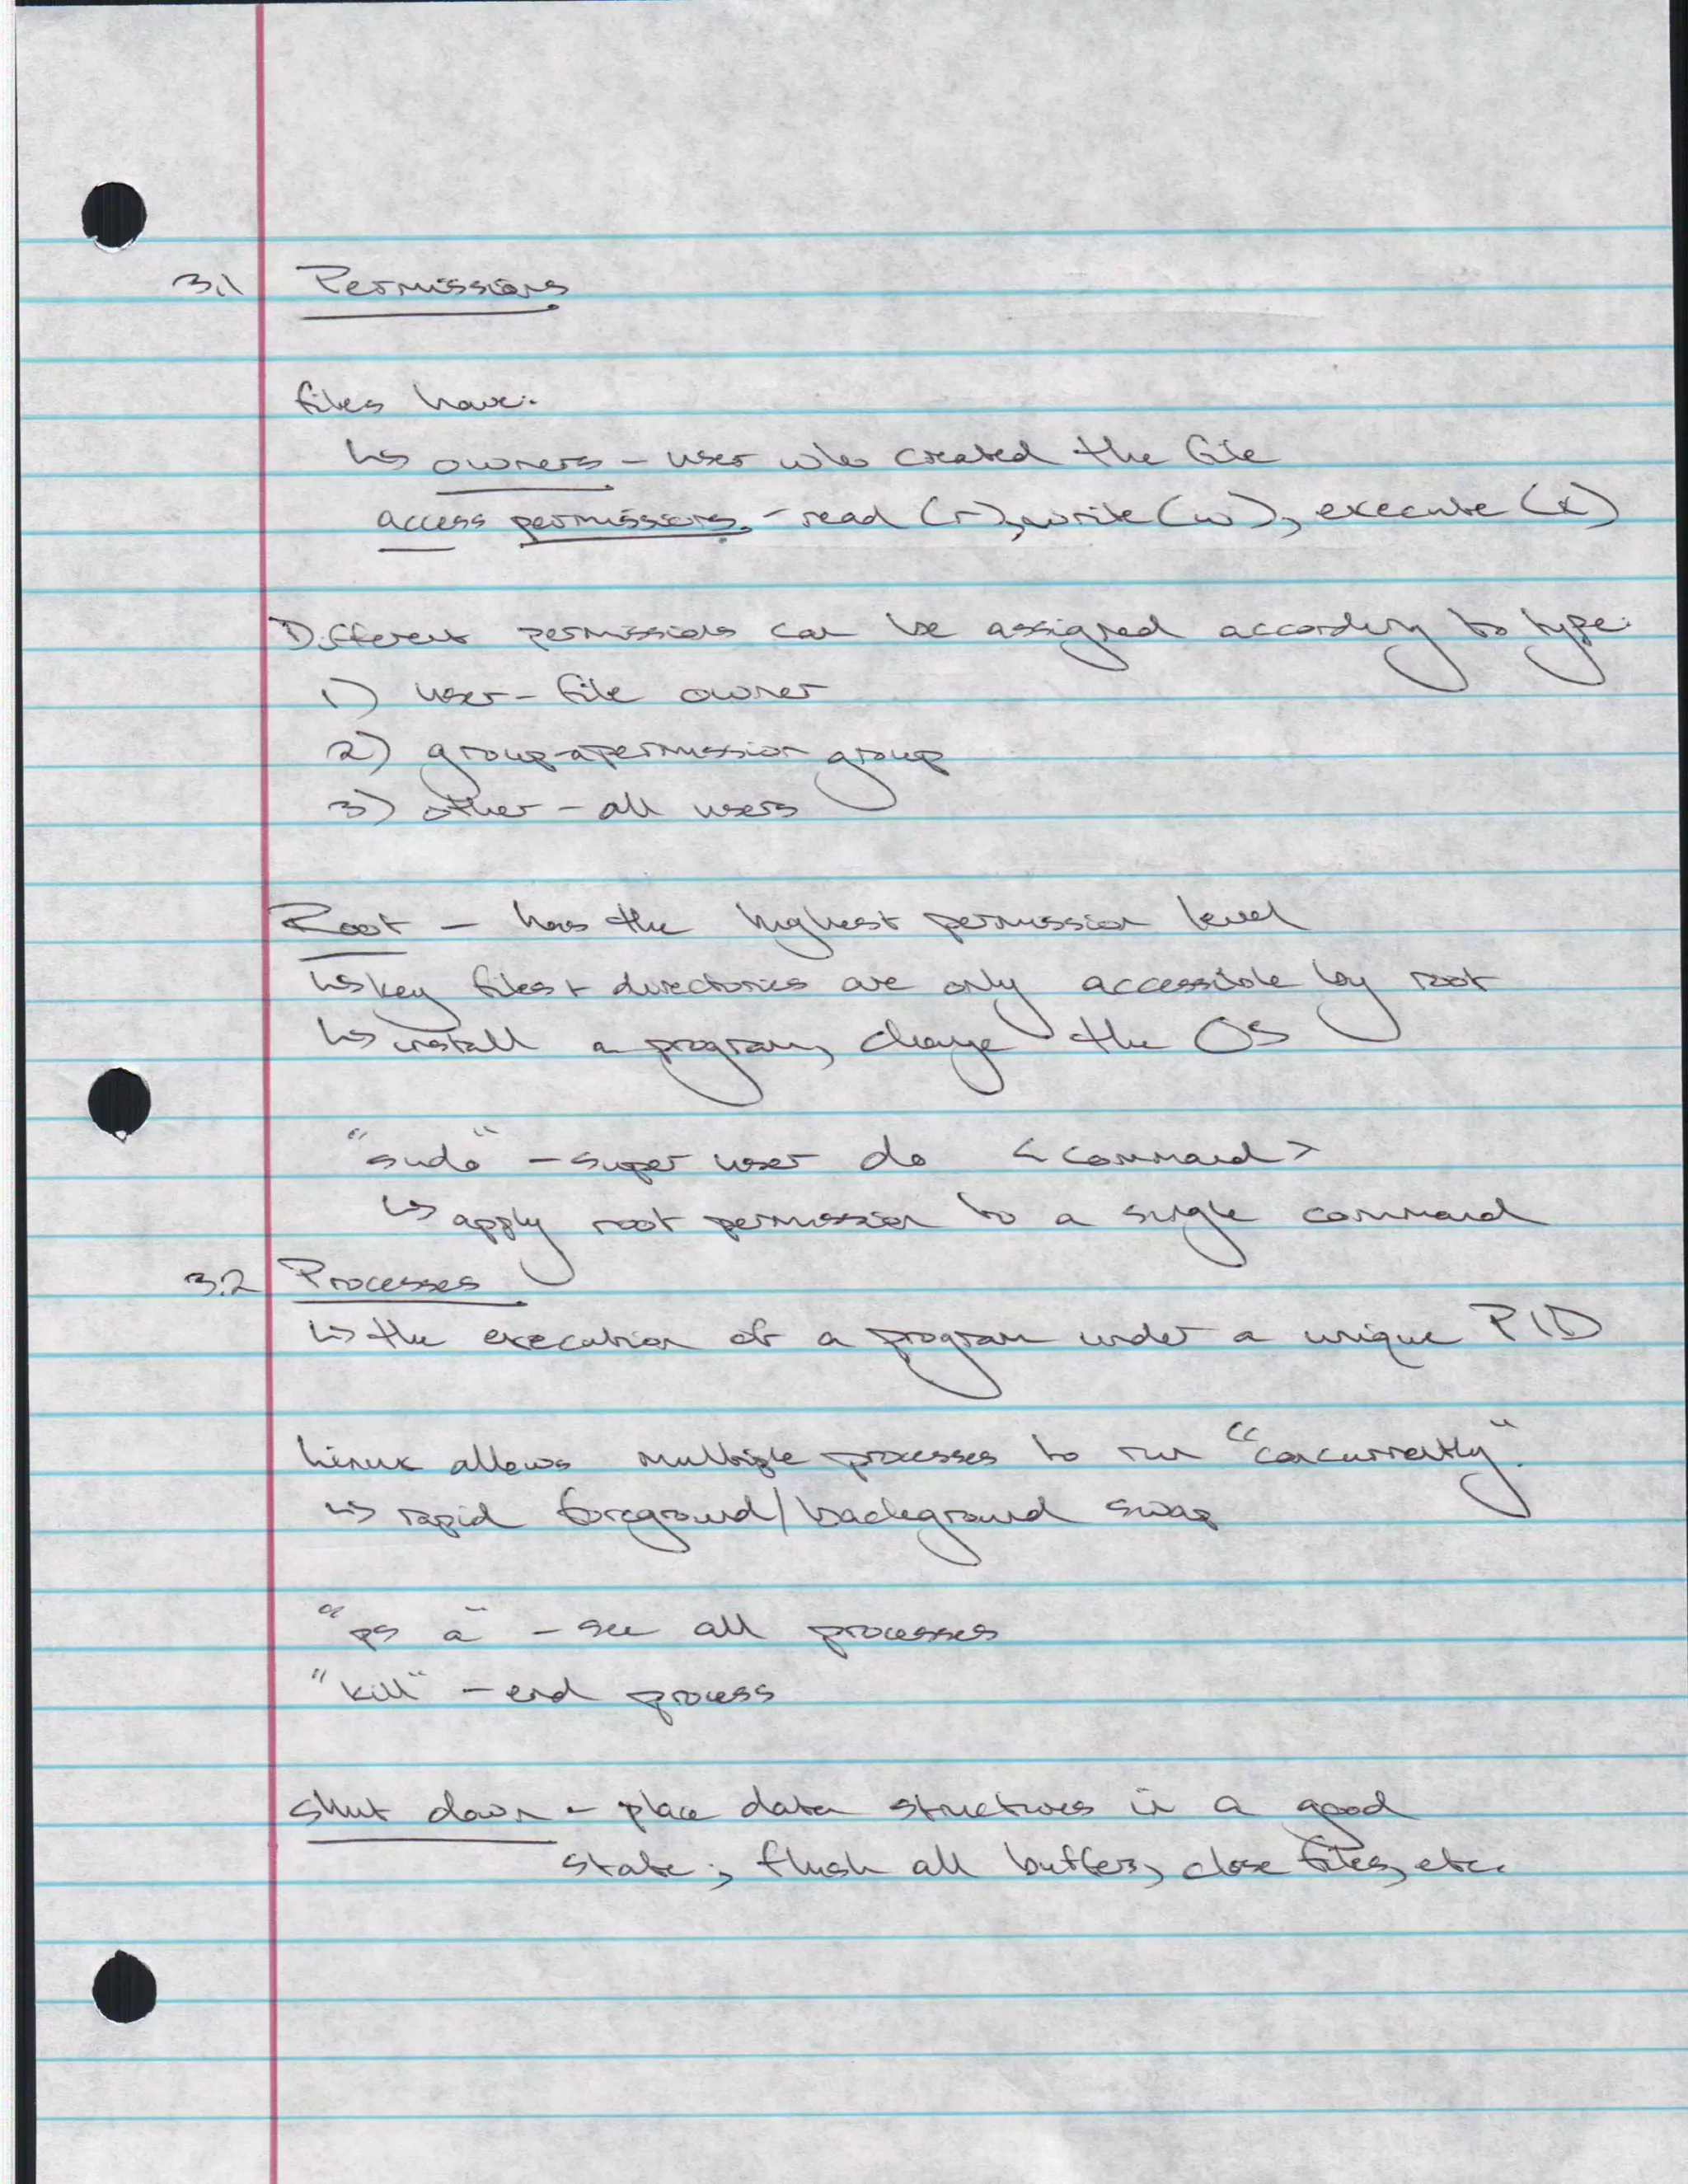 3.1 Permissions
files have:
↳ owners - user who created the file
access permissions - read (r), write (w), execute (x)
Different permissions can be assigned according to type:
1) user - file owner
2) group - a permission group
3) other - all users
Root - has the highest permission level
↳ key files + directories are only accessible by root
↳ install a program, change the OS
"sudo" - super user do <command>
↳ apply root permission to a single command
3.2 Processes
↳ the execution of a program under a unique PID
Linux allows multiple processes to run "concurrently".
↳ rapid foreground/background swap
"ps a" - see all processes
"kill" - end process
Shut down - place data structures in a good
state; flush all buffers, close files, etc.